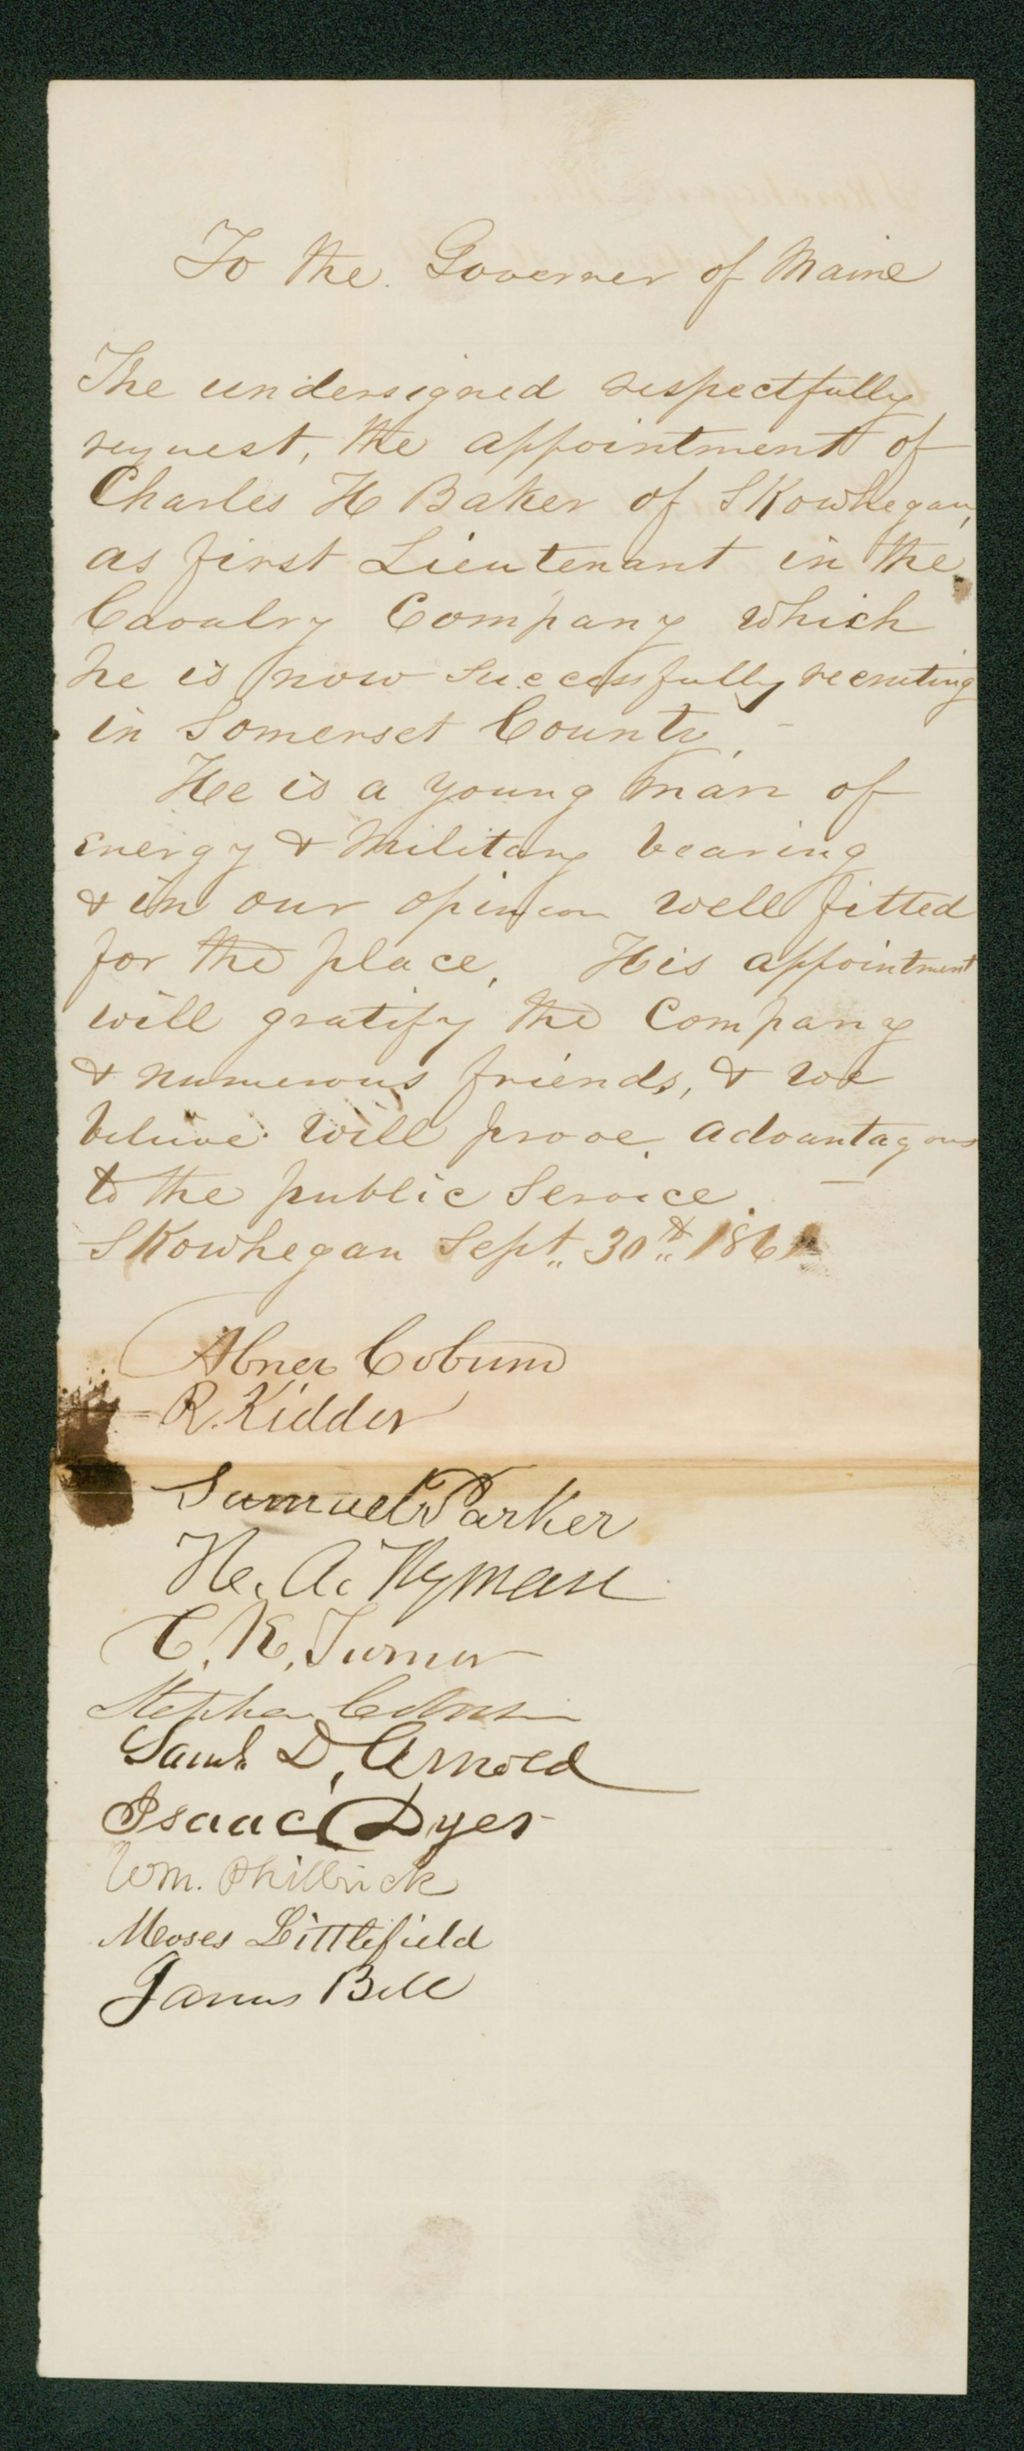 To the Governer of Maine
The undersigned respectfully
request, the appointment of
Charles H Baker of SKowhegan,
as first Lieutenant in the
Cavalry Company which
he is now successfully recruiting
in Somerset County. -
He is a young man of
energy & Military bearing
& in our opinion well fitted
for the place, His appointment
will gratify the Company
& numerous friends, & we
believe will prove advantagous
to the public Service. -
SKowhegan Sept. 30th 1861
Abner Coburn
R. Kidder
Samuel Parker
H. A. Wyman
C. K. Turner
Stephen
Saml. D. Arnold
Isaac Dyer
Wm. Philbrick
Moses Littlefield
James Bell